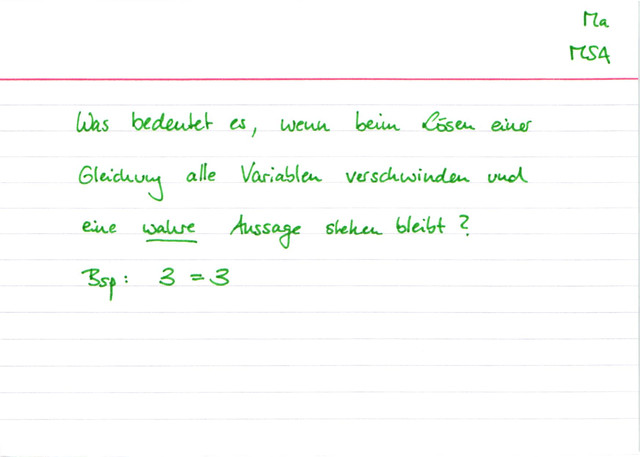 Ma
MSA
Was bedeutet es, wenn beim Lösen einer
Gleichung alle Variablen verschwinden und
eine wahre Aussage stehen bleibt?
Bsp: 3 = 3